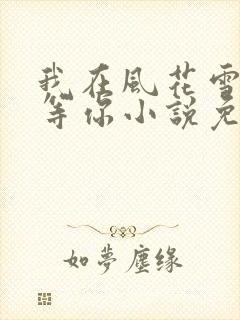 我在風花雪
等你小說免
如夢塵缘